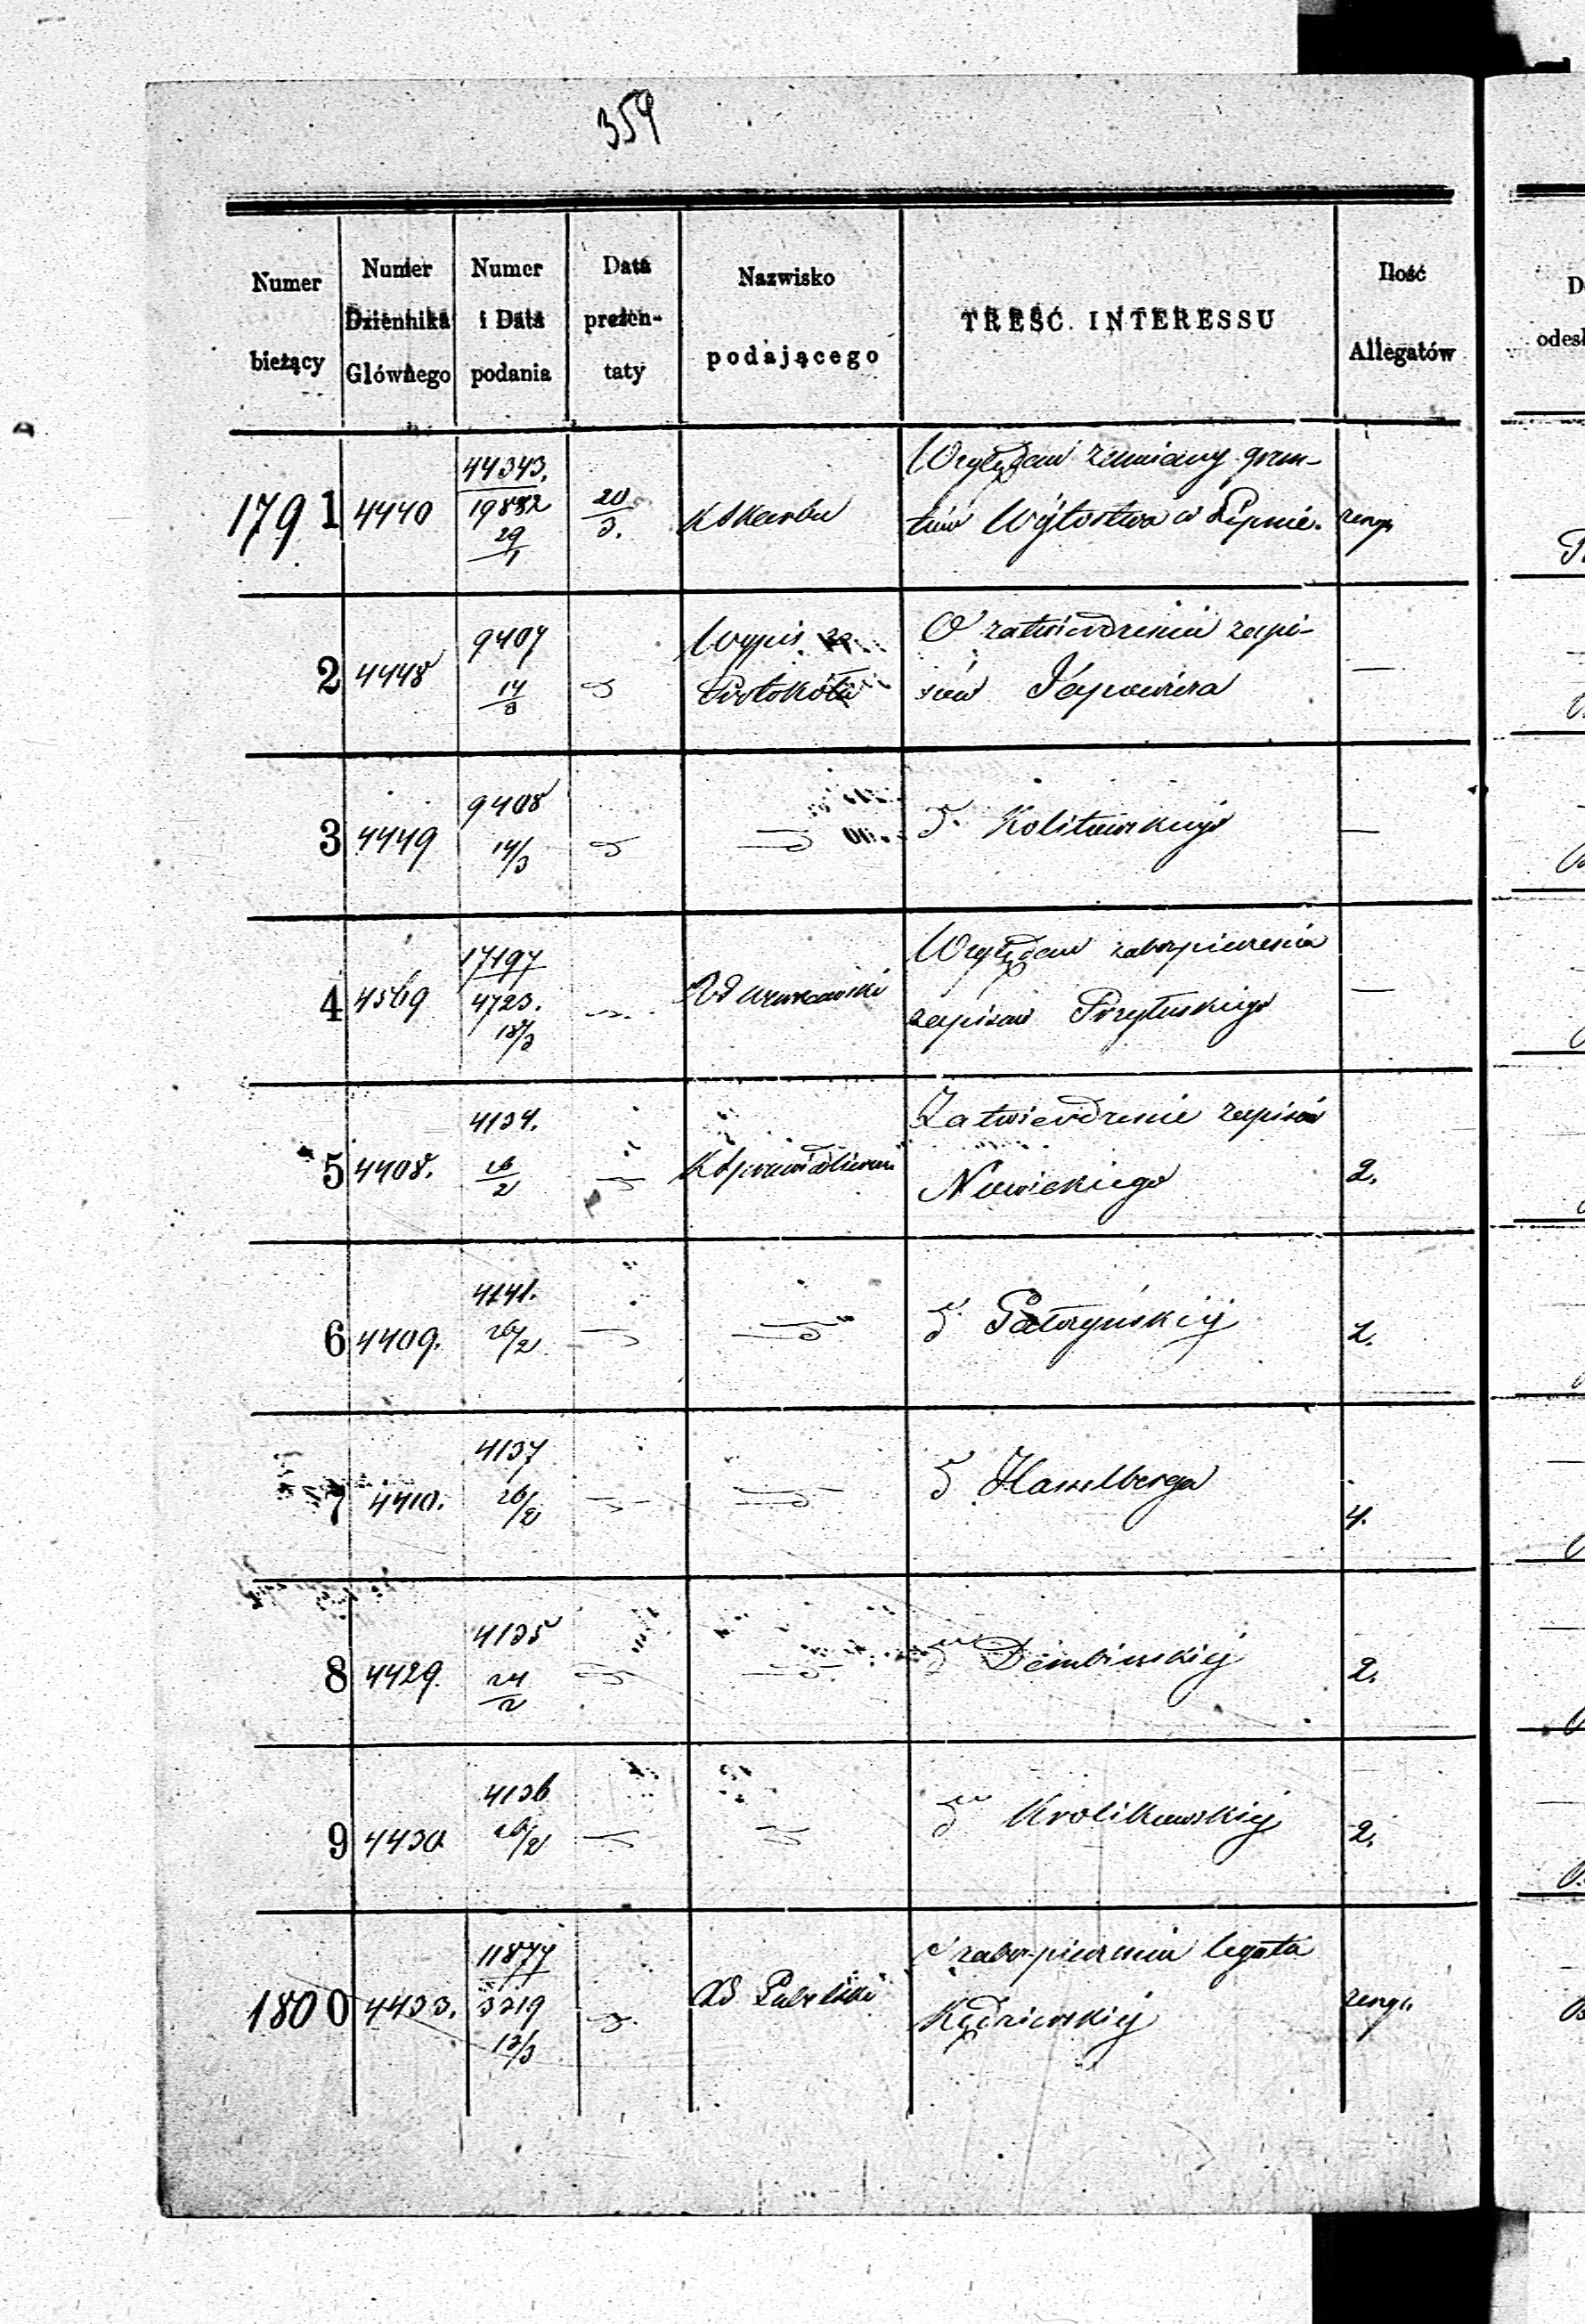 359
Numer bieżący | Numer Dziennika Głównego | Numer i Data podania | Data prezentaty | Nazwisko podającego | TREŚĆ INTERESSU | Ilość Allegatów
1791 | 4440 | 44343. 19882 29/1 | 20/3. | K Skarbu | Względem zamiany gruntów Wójtostwa w Lipnie.
2 | 4448 | 9407 14/3 | d | Wypis Protokółu | O zatwierdzenia zapisów | —
3 | 4449 | 9408 14/3 | d | d | d. Kolitowskiego | —
4 | 4569 | 17197 4723. 18/3 | Względem zabezpieczenia zapisów Przyłuskiego | —
5 | 4408. | 4134. 26/2 | K Sprawiedliwości | Zatwierdzenie zapisów Nowickiego | 2.
6 | 4409. | 4141. 26/2 | d | d | 2.
7 | 4410. | 4137 26/2 | d | d Hasselberga | 4.
8 | 4429. | 4135 24/2 | d | d | d Dembinskiej | 2.
9 | 4430 | 4136 26/2 | d | d | d Krolikowskiej | 2.
1800 | 4433. | 11877 3219 13/3 | d. | Lubelski | zabezpieczenia legata Kędzierskiej